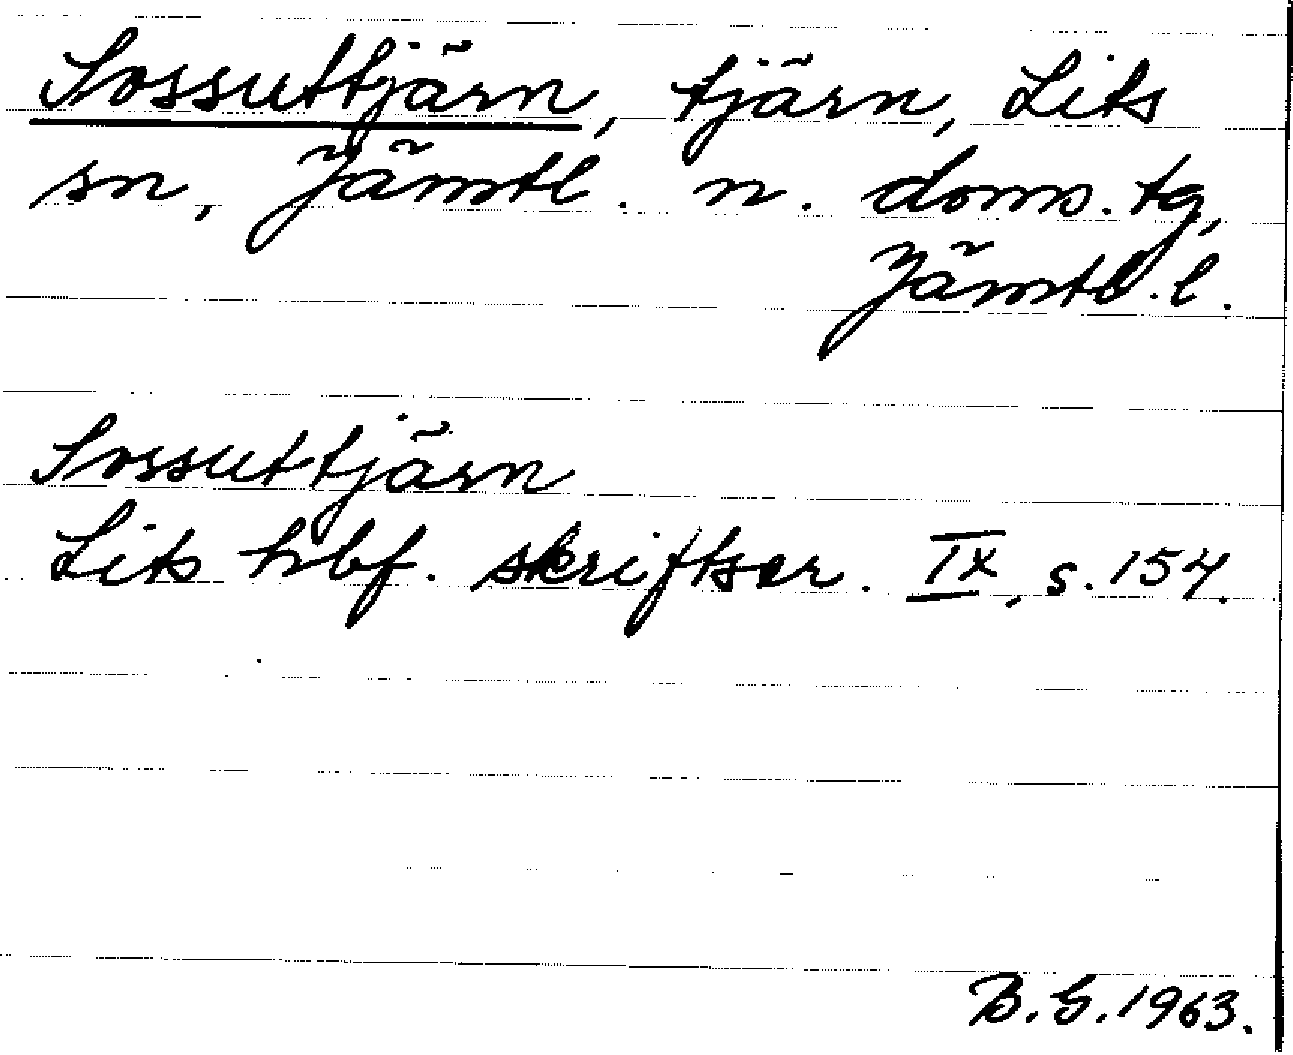 Sossuttjärn, tjärn, Lits
sn, Jämtl. n. doms.tg,
Jämtl.l.
Sossuttjärn
Lits hbf. skriftser. IX, s. 154.
B.G. 1963.